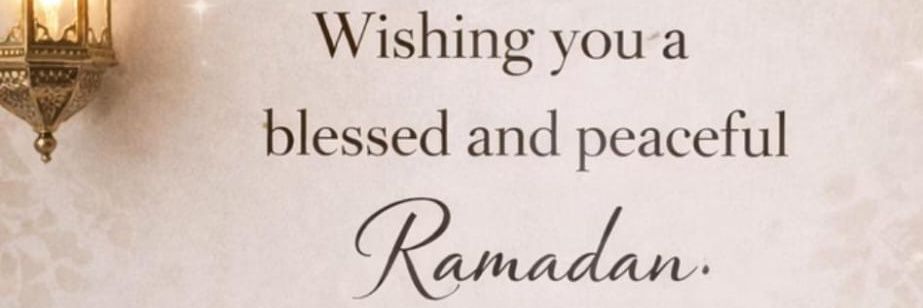 Wishing you a
blessed and peaceful
Ramadan.